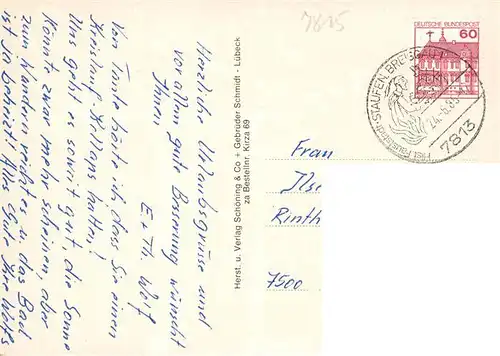 7815
Herzliche Urlaubsgrüsse und
vor allem gute Besserung wünscht
Ihnen
E + Th. Wolf
Von Tante hörte ich, dass Sie einen
Kreislauf-Kollaps hatten!
Uns geht es soweit gut, die Sonne
könnte zwar mehr scheinen, aber
zum Wandern reicht es u. das Bad
ist so beheizt! Alles Gute Ihre Wolfs
Herst. u. Verlag Schöning & Co + Gebrüder Schmidt - Lübeck
za Bestellnr. Kirza 69
DEUTSCHE BUNDESPOST
60
STAUFEN, BREISGAU 1
24.-6.85
7813
Frau
Ilse
Rinth
7500